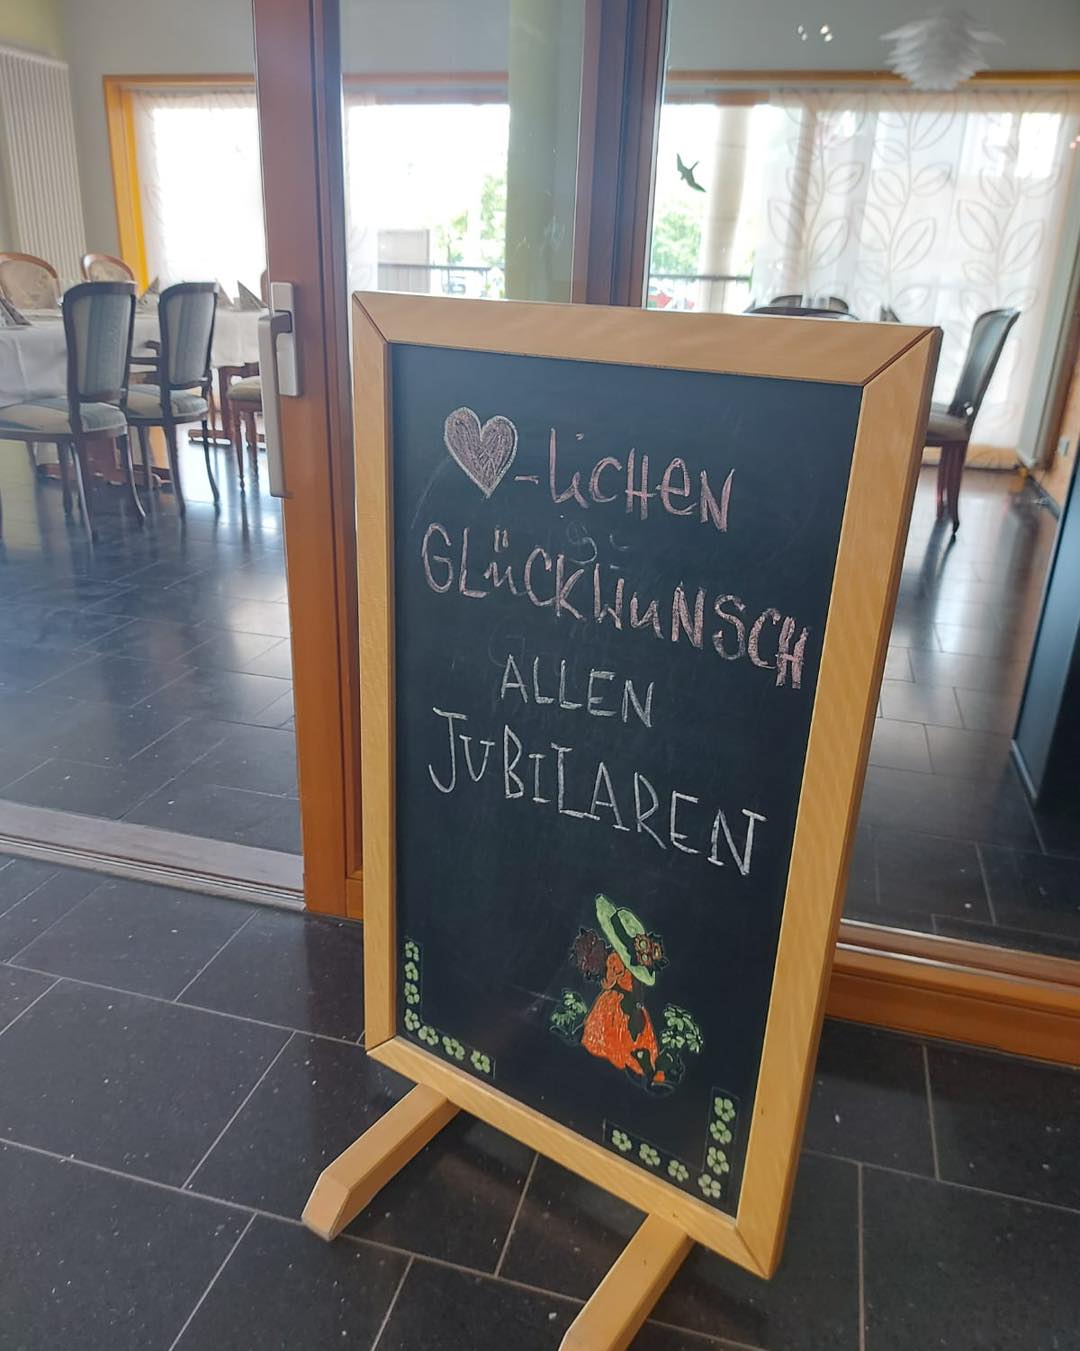 ♥-lichen
GLüCKWuNSCH
ALLEN
JuBILAREN